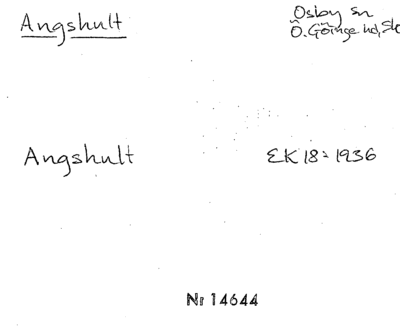 Angshult
Osby sn
Ö. Göinge hd, Sk
Angshult
EK 18: 1936
Nr 14644